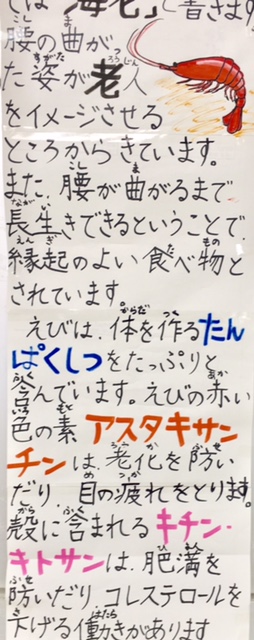 では「海老」と書きます
腰の曲がっ
た姿が老人
をイメージさせる
ところからきています。
また、腰が曲がるまで
長生きできるということで、
縁起のよい食べ物と
されています。
えびは、体を作るたん
ぱくしつをたっぷりと
ふくんでいます。えびの赤い
色の素 アスタキサン
チンは、老化を防い
だり、目の疲れをとります。
殻に含まれるキチン・
キトサンは、肥満を
防いだり、コレステロールを
下げる働きがあります